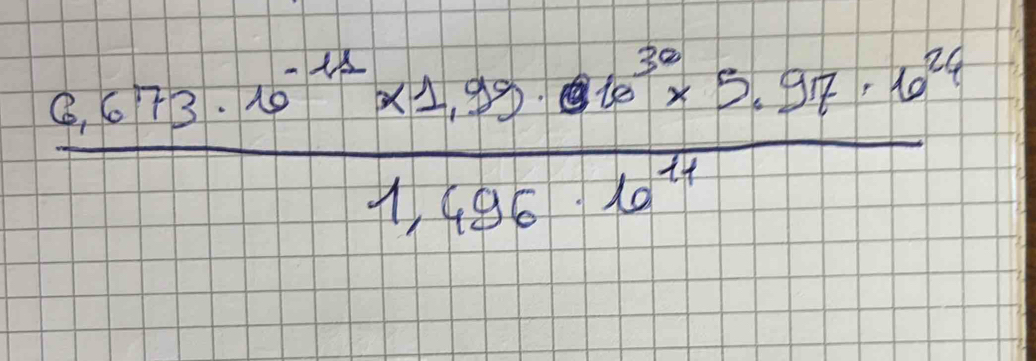 6,673 · 10^-11 × 1,99 · 10^30 × 5.97 · 10^24
1,496 · 10^11